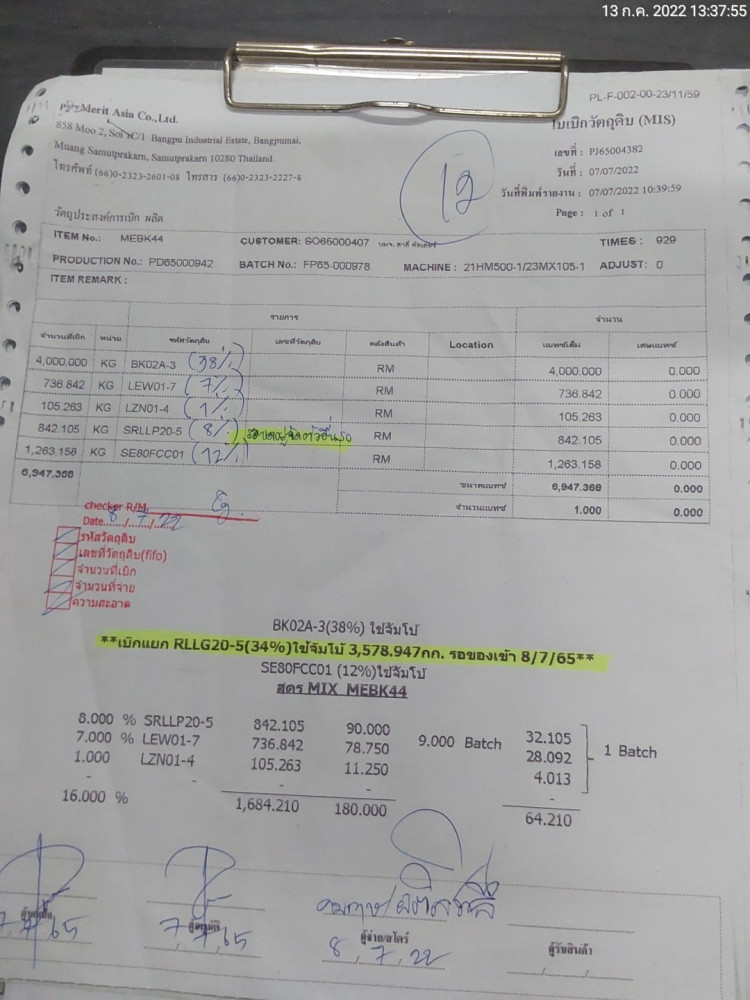 13 ก.ค. 2022 13:37:55
PL-F-002-00-23/11/59
PolyMerit Asia Co.,Ltd.
858 Moo 2, Soi 1C/1 Bangpu Industrial Estate, Bangpumai,
Muang Samutprakarn, Samutprakarn 10280 Thailand.
โทรศัพท์ (66)0-2323-2601-08 โทรสาร (66)0-2323-2227-8
ใบเบิกวัตถุดิบ (MIS)
เลขที่ : PJ65004382
วันที่ : 07/07/2022
วันที่พิมพ์รายงาน : 07/07/2022 10:39:59
Page : 1 of 1
12
วัตถุประสงค์การเบิก ผลิต
ITEM No.: MEBK44 CUSTOMER: SO65000407 TIMES : 929
PRODUCTION No.: PD65000942 BATCH No.: FP65-000978 MACHINE : 21HM500-1/23MX105-1 ADJUST: 0
ITEM REMARK :
รายการ จำนวน
จำนวนที่เบิก หน่วย รหัสวัตถุดิบ เลขที่วัตถุดิบ คลังสินค้า Location แบทช์เต็ม เศษแบทช์
4,000.000 KG BK02A-3 (38%) RM 4,000.000 0.000
736.842 KG LEW01-7 (7%) RM 736.842 0.000
105.263 KG LZN01-4 (1%) RM 105.263 0.000
842.105 KG SRLLP20-5 (8%) RM 842.105 0.000
1,263.158 KG SE80FCC01 (12%) RM 1,263.158 0.000
6,947.368 ขนาดแบทช์ 6,947.368 0.000
จำนวนแบทช์ 1.000 0.000
checker R/M
Date 8/7/22
รหัสวัตถุดิบ
เลขที่วัตถุดิบ(fifo)
จำนวนที่เบิก
จำนวนที่จ่าย
ความสะอาด
BK02A-3(38%) ใช้จัมโบ้
**เบิกแยก RLLG20-5(34%)ใช้จัมโบ้ 3,578.947กก. รอของเข้า 8/7/65**
SE80FCC01 (12%)ใช้จัมโบ้
สูตร MIX MEBK44
8.000 % SRLLP20-5 842.105 90.000 9.000 Batch 32.105 1 Batch
7.000 % LEW01-7 736.842 78.750 28.092
1.000 LZN01-4 105.263 11.250 4.013
- - - -
16.000 % 1,684.210 180.000 64.210
ผู้อนุมัติ ผู้จ่าย/สโตร์ ผู้รับสินค้า
7/7/65 7/7/65 8/7/22